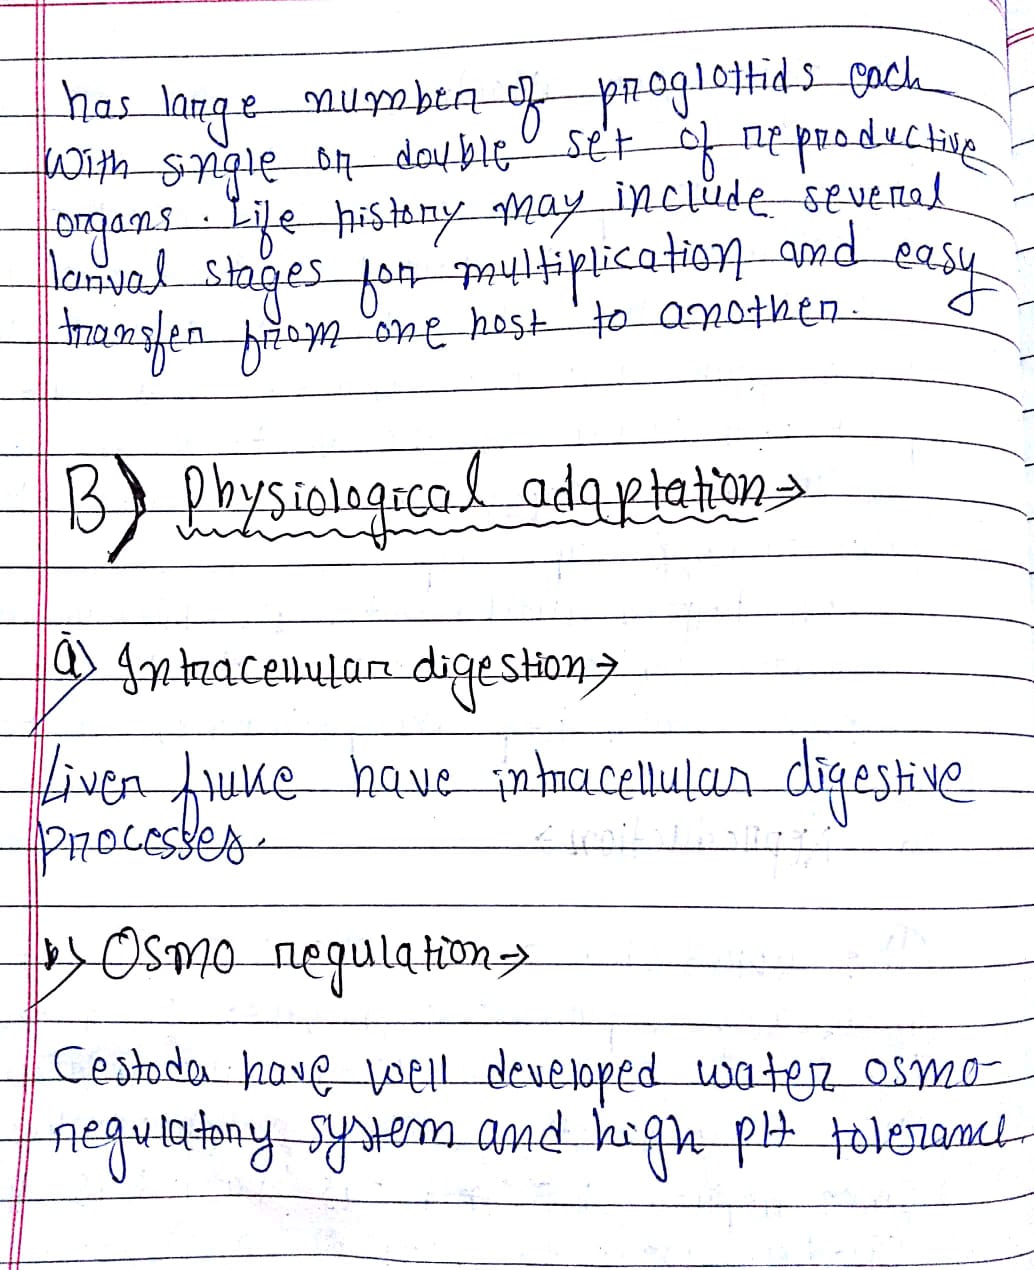 has large number of proglottids each
with single or double set of reproductive
organs. Life history may include several
larval stages for multiplication and easy
transfer from one host to another.
B) Physiological adaptation→
a) Intracellular digestion→
Liver fluke have intracellular digestive
processes.
b) Osmo regulation→
Cestoda have well developed water osmo-
regulatory system and high pH tolerance